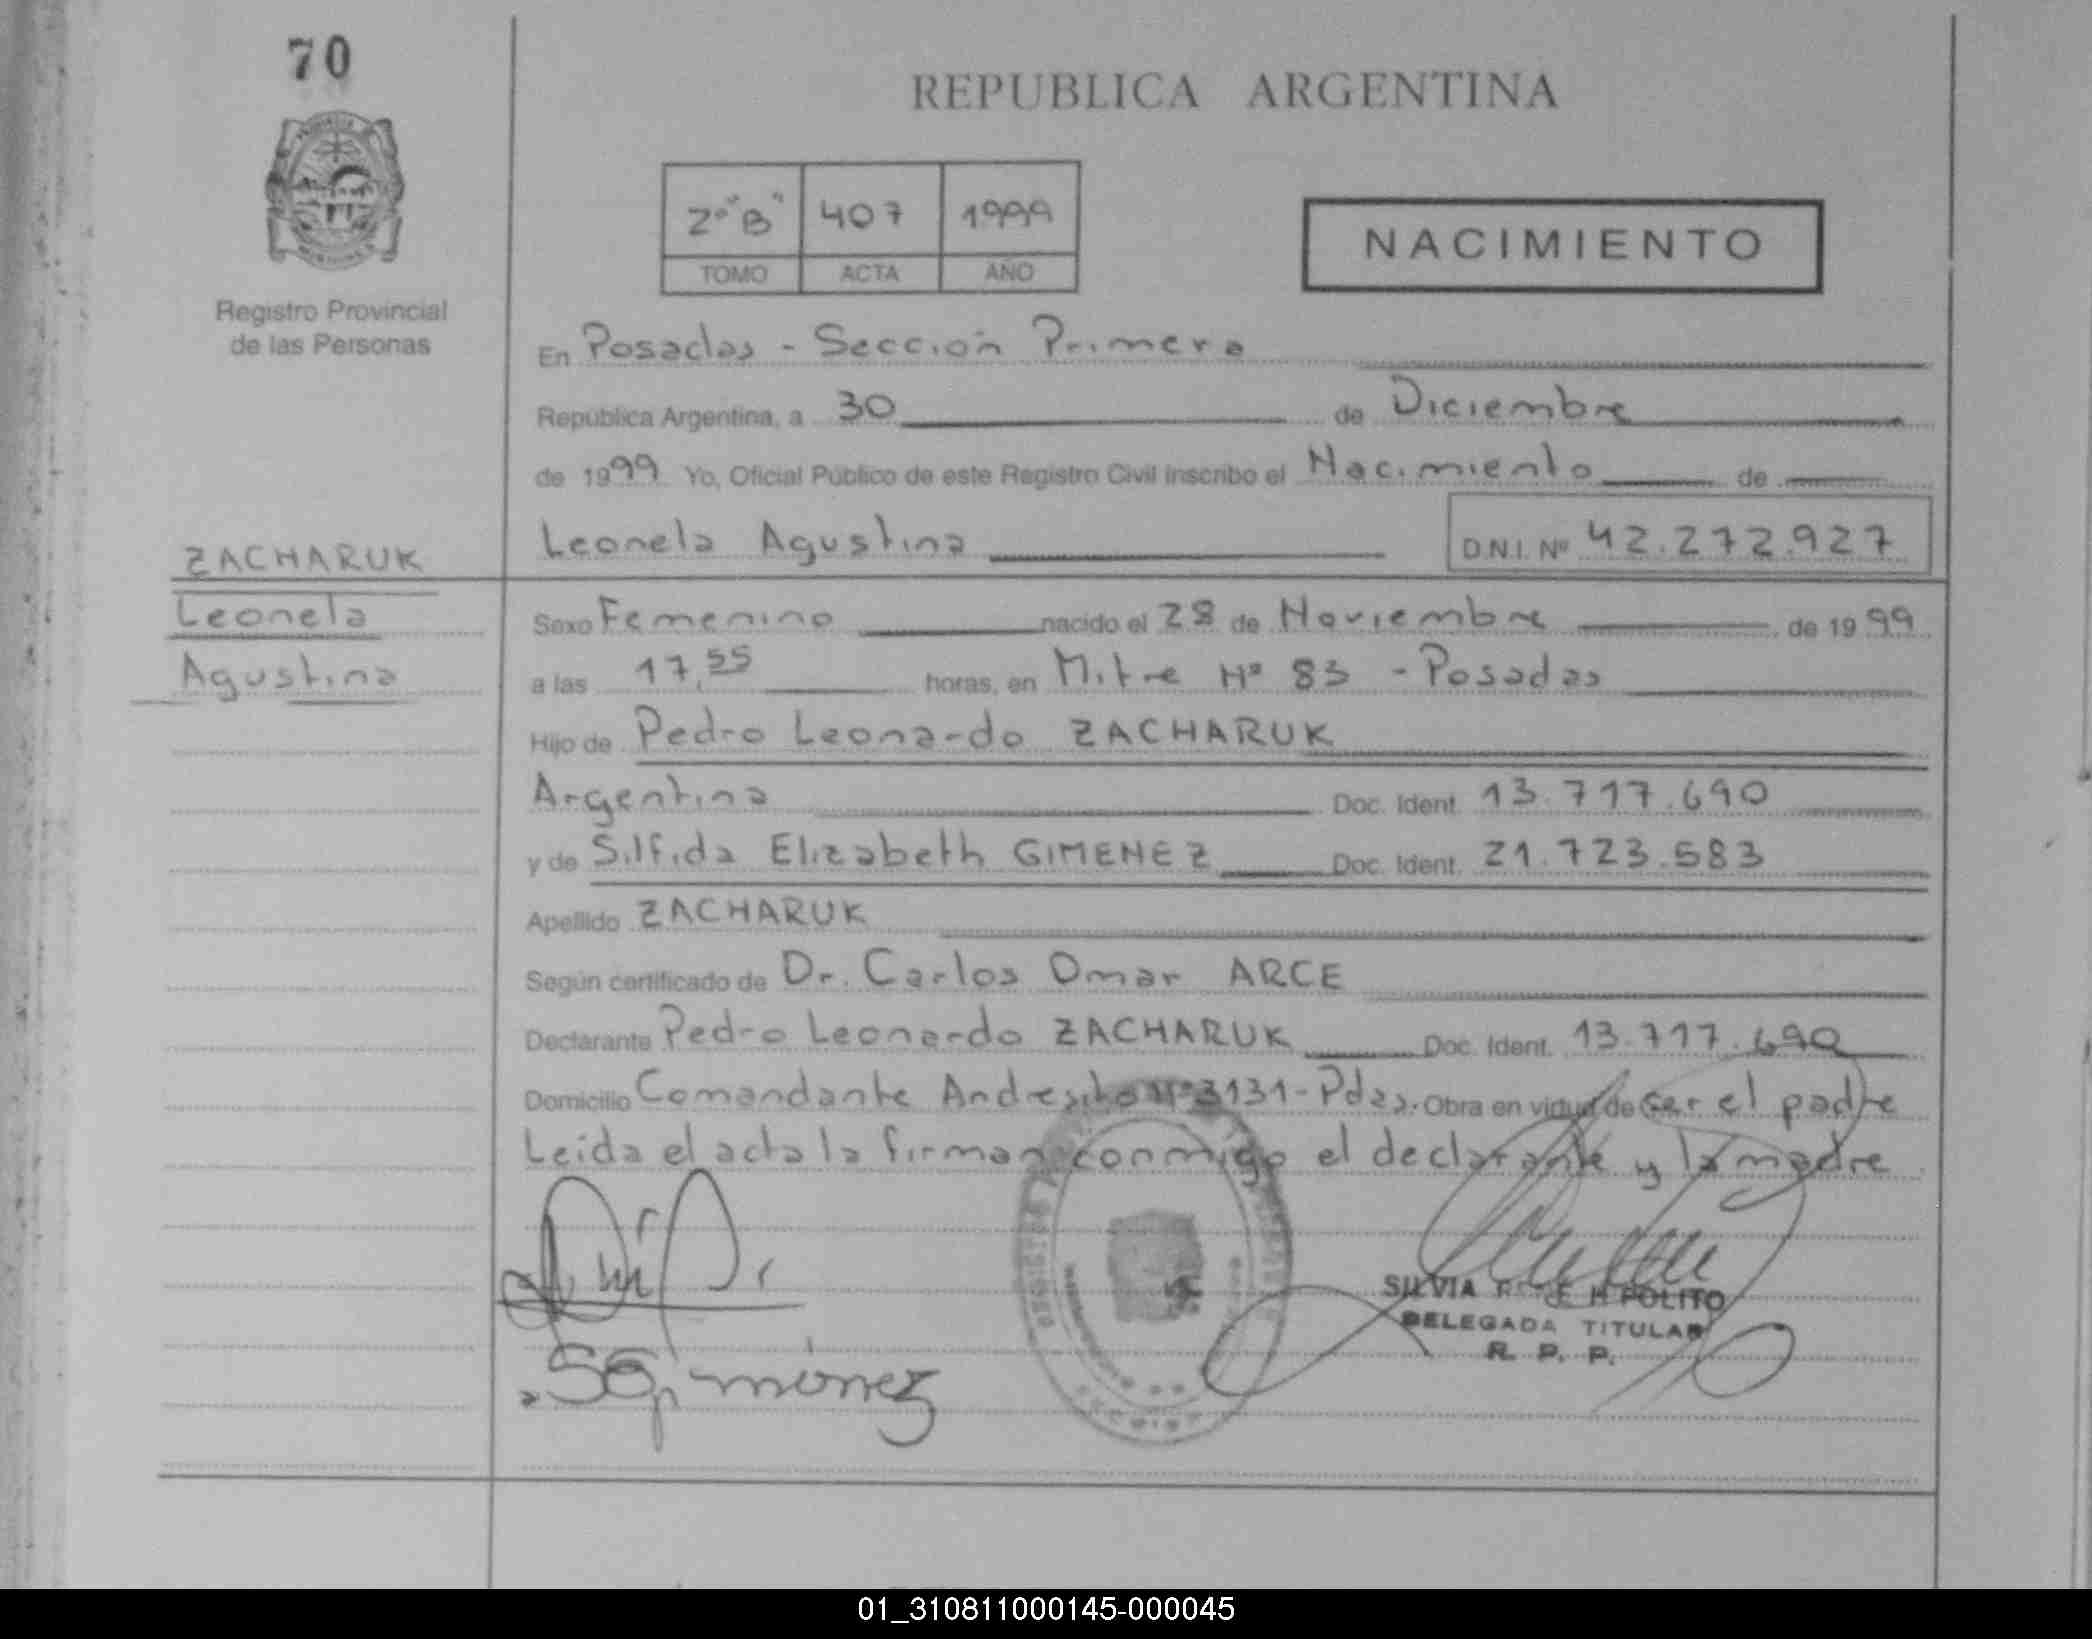 70
REPUBLICA ARGENTINA
2º "B" 407 1999
TOMO ACTA AÑO
NACIMIENTO
Registro Provincial
de las Personas
En Posadas - Sección Primera
República Argentina, a 30 de Diciembre
de 1999 Yo, Oficial Público de este Registro Civil inscribo el Nacimiento de
Leonela Agustina D.N.I. Nº 42.272.927
ZACHARUK
Leonela
Agustina
Sexo Femenino nacido el 28 de Noviembre de 1999
a las 17,55 horas, en Mitre Nº 83 - Posadas
Hijo de Pedro Leonardo ZACHARUK
Argentina Doc. Ident. 13.717.690
y de Silfida Elizabeth GIMENEZ Doc. Ident. 21.723.583
Apellido ZACHARUK
Según certificado de Dr. Carlos Omar ARCE
Declarante Pedro Leonardo ZACHARUK Doc. Ident. 13.717.690
Domicilio Comandante Andresito Nº 3131 - Pdas. Obra en virtud de ser el padre
Leída el acta la firman conmigo el declarante y la madre
SILVIA HIPOLITO
DELEGADA TITULAR
R. P. P.
01_310811000145-000045